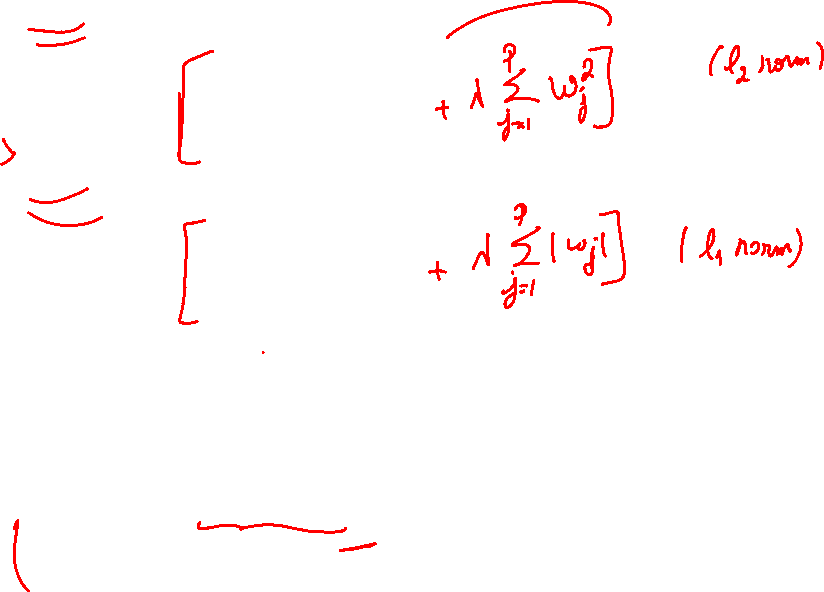 [ + λ ∑_{j=1}^{p} w_j^2 ] (l_2 norm)
[ + λ ∑_{j=1}^{p} |w_j| ] (l_1 norm)